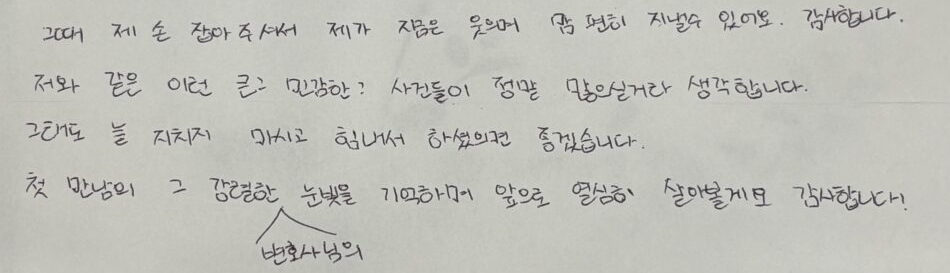 그때 제 손 잡아 주셔서 제가 지금은 웃으며 맘 편히 지낼수 있어요. 감사합니다.
저와 같은 이런 큰? 민감한? 사건들이 정말 많으실거라 생각합니다.
그래도 늘 지치지 마시고 힘내서 하셨으면 좋겠습니다.
첫 만남의 그 강렬한 눈빛을 기억하며 앞으로 열심히 살아볼게요 감사합니다!
변호사님의